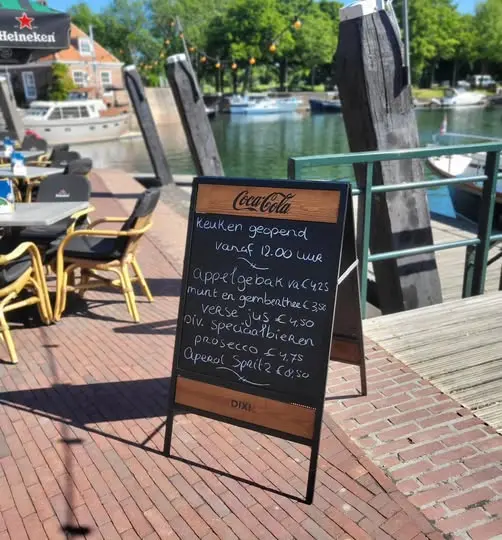 Heineken
Coca-Cola
Keuken geopend
vanaf 12.00 uur
Appelgebak va €4,25
munt en gemberthee €3,50
verse jus €4,50
Div. speciaalbieren
prosecco €4,75
Aperol Spritz €8,50
DIXI